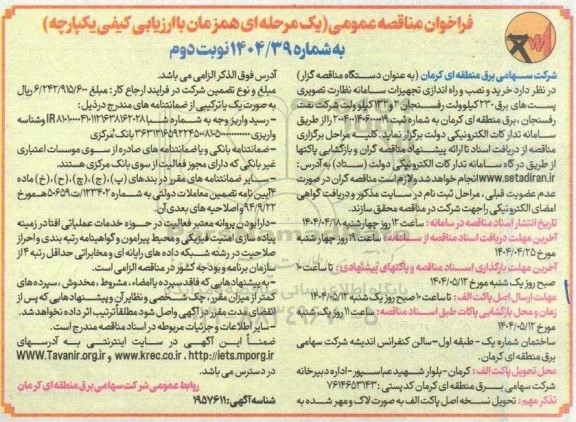 فراخوان مناقصه عمومی (یک مرحله ای همزمان با ارزیابی کیفی یکپارچه)
به شماره ۱۴۰۴/۳۹ نوبت دوم
شرکت سهامی برق منطقه ای کرمان (به عنوان دستگاه مناقصه گزار)
در نظر دارد خرید و نصب و راه اندازی تجهیزات سامانه نظارت تصویری
پست های برق ۲۳۰ کیلوولت رفسنجان ۲ و ۱۳۲ کیلوولت شرکت نفت
رفسنجان، برق منطقه ای کرمان به شماره را از طریق
سامانه تدارکات الکترونیکی دولت برگزار نماید. کلیه مراحل برگزاری
مناقصه از دریافت اسناد تا ارائه پیشنهاد مناقصه گران و بازگشایی پاکتها
از طریق درگاه سامانه تدارکات الکترونیکی دولت (ستاد) به آدرس:
www.setadiran.ir انجام خواهد شد و لازم است مناقصه گران در صورت
عدم عضویت قبلی، مراحل ثبت نام در سایت مذکور و دریافت گواهی
امضای الکترونیکی را جهت شرکت در مناقصه محقق سازند.
تاریخ انتشار اسناد مناقصه در سامانه: ساعت ۱۲ روز چهارشنبه ۱۴۰۴/۰۴/۱۸
آخرین مهلت دریافت اسناد مناقصه از سامانه: ساعت ۱۹ روز چهارشنبه
مورخ ۱۴۰۴/۰۴/۲۵
آخرین مهلت بارگذاری اسناد مناقصه و پاکتهای پیشنهادی: تا ساعت ۱۰
صبح روز یک شنبه مورخ ۱۴۰۴/۰۵/۱۲
مهلت ارسال اصل پاکت الف: تا ساعت ۱۰ صبح روز یک شنبه ۱۴۰۴/۰۵/۱۲
زمان و محل بازگشایی پاکات طبق اسناد مناقصه: ساعت ۱۱ روز یک شنبه
مورخ ۱۴۰۴/۰۵/۱۲
ساختمان شماره یک - طبقه اول - سالن کنفرانس اندیشه شرکت سهامی
برق منطقه ای کرمان.
محل تحویل پاکت الف: کرمان - بلوار شهید عباسپور - اداره دبیرخانه
شرکت سهامی برق منطقه ای کرمان کدپستی: ۷۶۱۴۶۵۳۱۴۳
تذکر مهم: تحویل نسخه اصل پاکت الف به صورت لاک و مهر شده به
آدرس فوق الذکر الزامی می باشد.
مبلغ و نوع تضمین شرکت در فرایند ارجاع کار: مبلغ ۶/۲۴۲/۹۱۵/۶۰۰ ریال
به صورت یک یا ترکیبی از ضمانتنامه های مندرج در ذیل:
- رسید واریز وجه به شماره شبا
واریزی بانک مرکزی
- ضمانتنامه بانکی و یا ضمانتنامه های صادره از سوی موسسات اعتباری
غیر بانکی که دارای مجوز فعالیت از سوی بانک مرکزی هستند.
- سایر ضمانتنامه های مقرر در بندهای (پ)، (ج)، (چ)، (ح)، (خ) ماده
۴ آیین نامه تضمین معاملات دولتی به شماره ۱۲۳۴۰۲/ت۵۰۶۵۹ه مورخ
۹۴/۹/۲۲ و اصلاحیه های بعدی آن.
- دارا بودن پروانه معتبر فعالیت در حوزه خدمات عملیاتی افتا در زمینه
پیاده سازی امنیت فیزیکی و محیط پیرامون و گواهینامه رتبه بندی و احراز
صلاحیت در رشته شبکه داده های رایانه ای و مخابراتی حداقل رتبه ۴ از
سازمان برنامه و بودجه کشور در مناقصه الزامی است.
- به پیشنهادهایی که فاقد سپرده یا امضاء، مشروط، مخدوش، سپرده های
کمتر از میزان مقرر، چک شخصی و نظایر آن و پیشنهادهایی که پس از
انقضای مدت مقرر در آگهی واصل شود مطلقاً ترتیب اثر داده نخواهد شد.
- سایر اطلاعات و جزئیات مربوطه در اسناد مناقصه مندرج است.
ضمناً این آگهی در سایت اینترنتی به آدرسهای
WWW.Tavanir.org.ir و www.krec.co.ir ، http://iets.mporg.ir
در دسترس می باشد.
شناسه آگهی: ۱۹۵۷۶۱۱
روابط عمومی شرکت سهامی برق منطقه ای کرمان